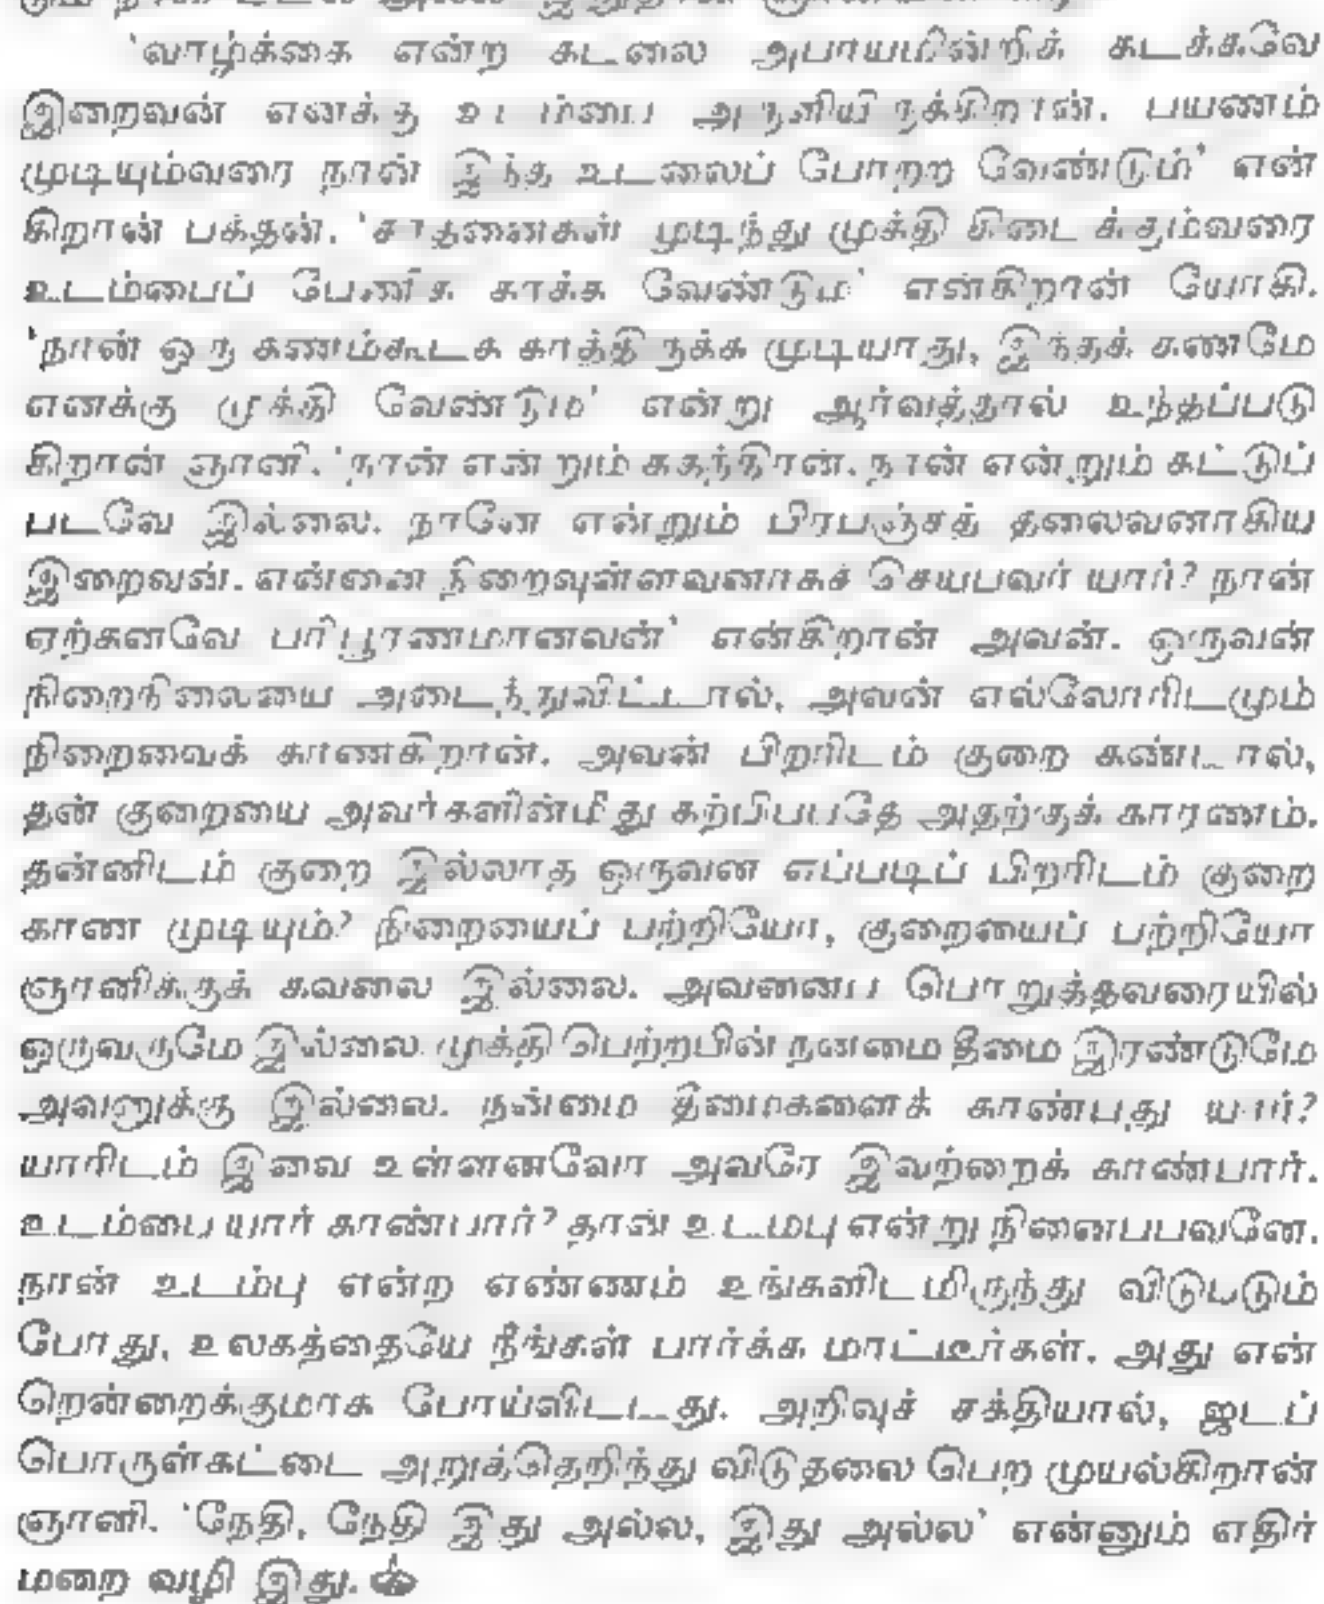 'வாழ்க்கை என்ற கடலை அபாயமின்றிக் கடக்கவே
இறைவன் எனக்கு உடம்பை அருளியிருக்கிறான். பயணம்
முடியும்வரை நான் இந்த உடலைப் போற்ற வேண்டும்' என்
கிறான் பக்தன். 'சாதனைகள் முடிந்து முக்தி கிடைக்கும்வரை
உடம்பைப் பேணிக் காக்க வேண்டும்' என்கிறான் யோகி.
'நான் ஒரு கணம்கூடக் காத்திருக்க முடியாது, இந்தக் கணமே
எனக்கு முக்தி வேண்டும்' என்று ஆர்வத்தால் உந்தப்படு
கிறான் ஞானி. 'நான் என்றும் சுதந்திரன். நான் என்றும் கட்டுப்
படவே இல்லை. நானே என்றும் பிரபஞ்சத் தலைவனாகிய
இறைவன். என்னை நிறைவுள்ளவனாகச் செய்பவர் யார்? நான்
ஏற்கனவே பரிபூரணமானவன்' என்கிறான் அவன். ஒருவன்
நிறைநிலையை அடைந்துவிட்டால், அவன் எல்லோரிடமும்
நிறைவைக் காண்கிறான். அவன் பிறரிடம் குறை கண்டால்,
தன் குறையை அவர்களின்மீது கற்பிப்பதே அதற்குக் காரணம்.
தன்னிடம் குறை இல்லாத ஒருவன் எப்படிப் பிறரிடம் குறை
காண முடியும்? நிறையைப் பற்றியோ, குறையைப் பற்றியோ
ஞானிக்குக் கவலை இல்லை. அவனைப் பொறுத்தவரையில்
ஒருவருமே இல்லை. முக்தி பெற்றபின் நன்மை தீமை இரண்டுமே
அவனுக்கு இல்லை. நன்மை தீமைகளைக் காண்பது யார்?
யாரிடம் இவை உள்ளனவோ அவரே இவற்றைக் காண்பார்.
உடம்பை யார் காண்பார்? தான் உடம்பு என்று நினைப்பவனே.
நான் உடம்பு என்ற எண்ணம் உங்களிடமிருந்து விடுபடும்
போது, உலகத்தையே நீங்கள் பார்க்க மாட்டீர்கள். அது என்
றென்றைக்குமாக போய்விட்டது. அறிவுச் சக்தியால், ஜடப்
பொருள்கட்டை அறுத்தெறிந்து விடுதலை பெற முயல்கிறான்
ஞானி. 'நேதி, நேதி இது அல்ல, இது அல்ல' என்னும் எதிர்
மறை வழி இது.